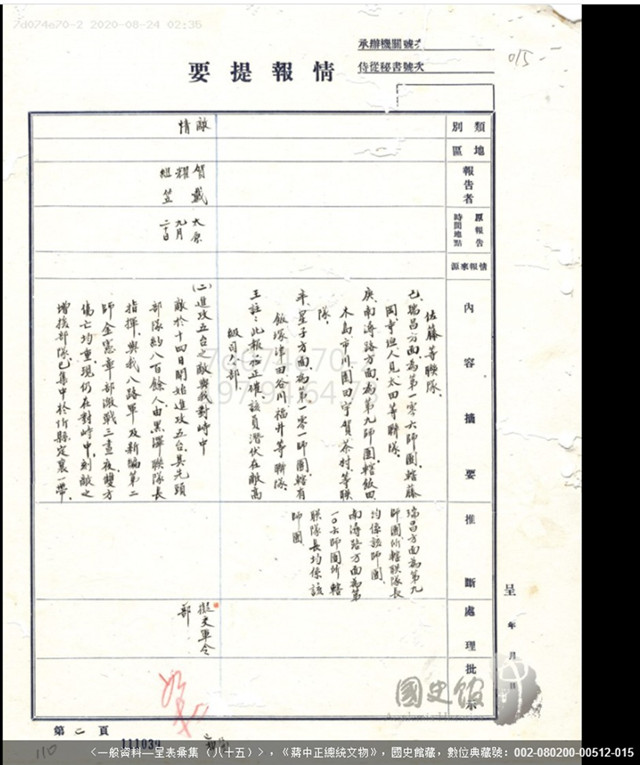 7d074670-2 2020-08-24 02:35
承辦機關號次
侍從秘書號次
015
情報提要
類別
地區
報告者
原報告時間地點
情報來源
內容摘要
推斷
處理
批示
呈 年 月 日
敵情
賀耀組
戴笠
太原
九月
佐藤等聯隊、
巳、瑞昌方面為第一零六師團、轄藤
岡重遠人見太田等聯隊、
庚、南潯路方面為第九師團、轄飯田
木島市川團田守賀茶村等聯
隊、
辛、星子方面為第一零一師團、轄有
飯塚津田谷川福井等聯隊、
王註：此報極正確、該員潛伏在敵高
級司令部
(二)進攻五台之敵與我對峙中
敵於十四日開始進攻五台、其先頭
部隊約八百餘人由黑澤聯隊長
指揮、與我八路軍及新編第二
師金憲章部激戰三晝夜、雙方
傷亡均重、現仍在對峙中、刻敵之
增援部隊已集中於忻縣定襄一帶、
瑞昌方面為第九
師團所轄聯隊長
均係該師團
南潯路方面為第
一〇六師團所轄
聯隊長均係該
師團
擬交軍令
部
7d074670-2
國史館
第二頁
111039
110
〈一般資料—呈表彙集（八十五）〉，《蔣中正總統文物》，國史館藏，數位典藏號：002-080200-00512-015